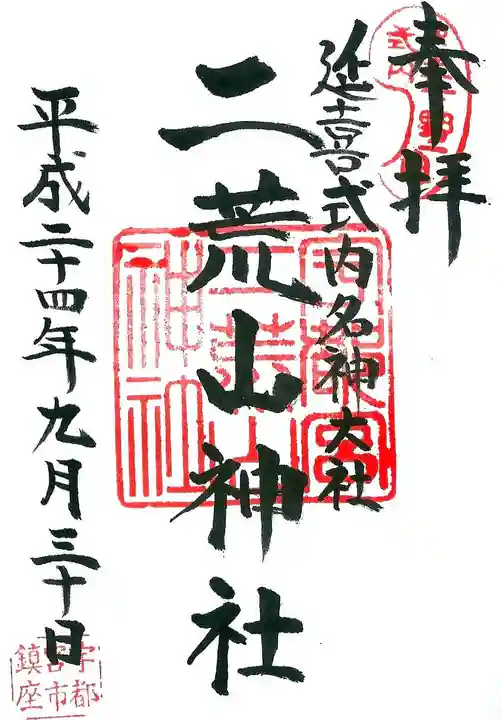 奉拝
延喜式内名神大社
二荒山神社
平成二十四年九月三十日
宇都
宮市
鎮座